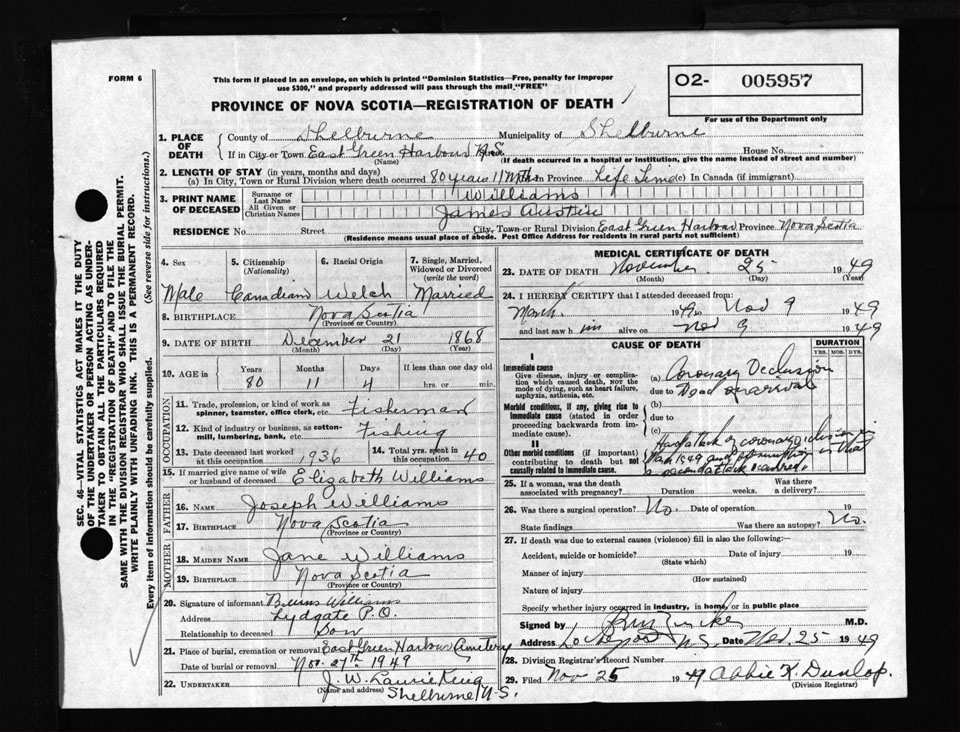 FORM 6
This form if placed in an envelope, on which is printed "Dominion Statistics—Free, penalty for improper
use $300," and properly addressed will pass through the mail "FREE"
O2- 005957
For use of the Department only
PROVINCE OF NOVA SCOTIA—REGISTRATION OF DEATH
SEC. 46—VITAL STATISTICS ACT MAKES IT THE DUTY
OF THE UNDERTAKER OR PERSON ACTING AS UNDER-
TAKER TO OBTAIN ALL THE PARTICULARS REQUIRED
IN THE "REGISTRATION OF DEATH" AND TO FILE THE
SAME WITH THE DIVISION REGISTRAR WHO SHALL ISSUE THE BURIAL PERMIT.
WRITE PLAINLY WITH UNFADING INK. THIS IS A PERMANENT RECORD.
Every item of information should be carefully supplied. (See reverse side for instructions.)
1. PLACE OF DEATH
County of Shelburne Municipality of Shelburne
If in City or Town East Green Harbour N.S. House No.
(Name) (If death occurred in a hospital or institution, give the name instead of street and number)
2. LENGTH OF STAY (in years, months and days)
(a) In City, Town or Rural Division where death occurred 80 years 11 Mths In Province Life Time (c) In Canada (if immigrant)
3. PRINT NAME OF DECEASED
Surname or Last Name Williams
All Given or Christian Names James Austin
RESIDENCE No. Street City, Town or Rural Division East Green Harbour Province Nova Scotia
(Residence means usual place of abode. Post Office Address for residents in rural parts not sufficient)
4. Sex
Male
5. Citizenship (Nationality)
Canadian
6. Racial Origin
Welch
7. Single, Married, Widowed or Divorced (write the word)
Married
8. BIRTHPLACE Nova Scotia
(Province or Country)
9. DATE OF BIRTH December 21 1868
(Month) (Day) (Year)
10. AGE in Years Months Days If less than one day old
80 11 4 hrs. or min.
OCCUPATION
11. Trade, profession, or kind of work as spinner, teamster, office clerk, etc. Fisherman
12. Kind of industry or business, as cotton-mill, lumbering, bank, etc. Fishing
13. Date deceased last worked at this occupation 1936
14. Total yrs. spent in this occupation 40
15. If married give name of wife or husband of deceased Elizabeth Williams
FATHER
16. Name Joseph Williams
17. Birthplace Nova Scotia
(Province or Country)
MOTHER
18. Maiden Name Jane Williams
19. Birthplace Nova Scotia
(Province or Country)
20. Signature of informant Williams
Address Lydgate P.O.
Relationship to deceased Son
21. Place of burial, cremation or removal East Green Harbour Cemetery
Date of burial or removal Nov. 27th 1949
22. UNDERTAKER J. W. Laurie King
(Name and address) Shelburne N.S.
MEDICAL CERTIFICATE OF DEATH
23. DATE OF DEATH November 25 1949
(Month) (Day) (Year)
24. I HEREBY CERTIFY that I attended deceased from:
March 19 to Nov 9 1949
and last saw him alive on Nov 9 1949
CAUSE OF DEATH
DURATION
YRS. MOS. DYS.
I
Immediate cause
Give disease, injury or complication which caused death, NOT the mode of dying, such as heart failure, asphyxia, asthenia, etc.
(a) Coronary Occlusion
due to Dead on arrival
Morbid conditions, if any, giving rise to immediate cause (stated in order proceeding backwards from immediate cause).
(b)
due to
(c)
II
Other morbid conditions (if important) contributing to death but not causally related to immediate cause.
Had attack of coronary occlusion in
1949 and is that
a second attack occurred
25. If a woman, was the death associated with pregnancy? Duration weeks. Was there a delivery?
26. Was there a surgical operation? No. Date of operation 19
State findings Was there an autopsy? No.
27. If death was due to external causes (violence) fill in also the following:—
Accident, suicide or homicide? Date of injury 19
(State which)
Manner of injury
(How sustained)
Nature of injury
Specify whether injury occurred in industry, in home, or in public place
Signed by M.D.
Address Lockeport N.S. Date Nov. 25 1949
28. Division Registrar's Record Number
29. Filed Nov 25 1949 Abbie K. Dunlop.
(Division Registrar)